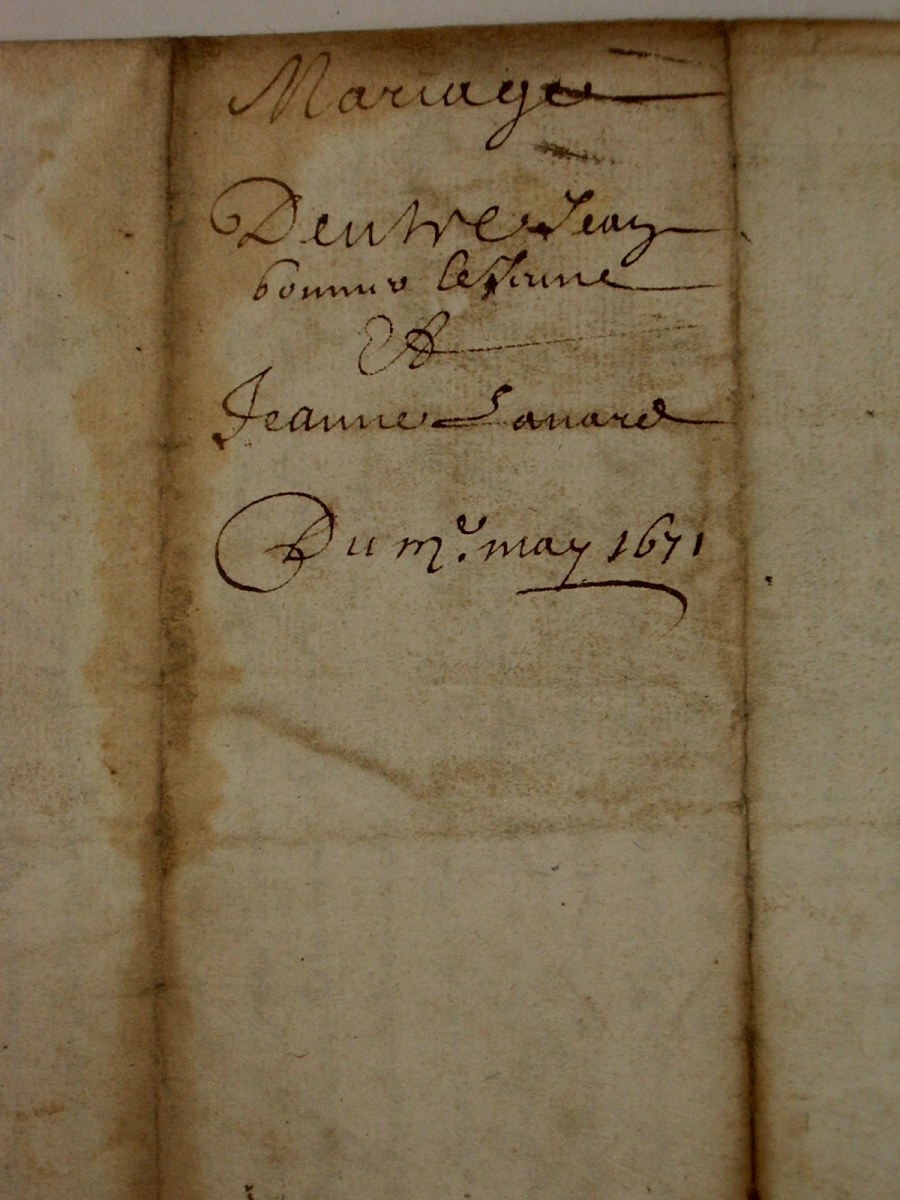 Mariage
Dentre Jean
bonnus le Jeune
Et
Jeanne Lanard
Du m.e may 1671